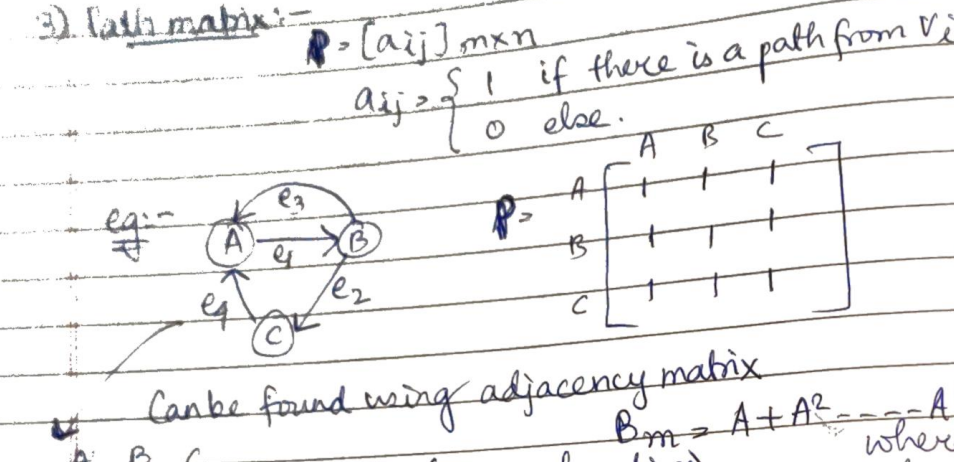 3) Path matrix:-
P = [aij] m×n
aij = { 1 if there is a path from Vi
0 else.
A B C
eg:-
e3
A e1 B
e4 e2
C
P =
A 1 1 1
B 1 1 1
C 1 1 1
Can be found using adjacency matrix
Bm = A + A² ---- A
where
A B C